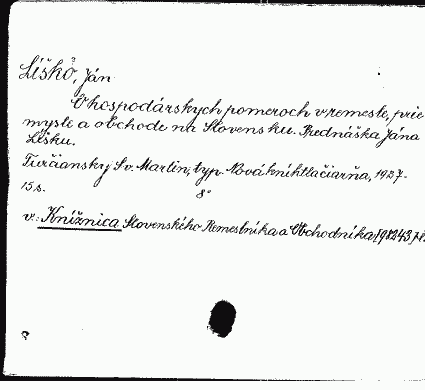 Liško, Ján
O hospodárskych pomeroch v remesle, prie
mysle a obchode na Slovensku. Prednáška Jána
Lišku.
Turčiansky Sv. Martin, typ. Nová kníhtlačiarňa, 1927.
15 s. 8°
v: Knižnica Slovenského Remeselníka a Obchodníka